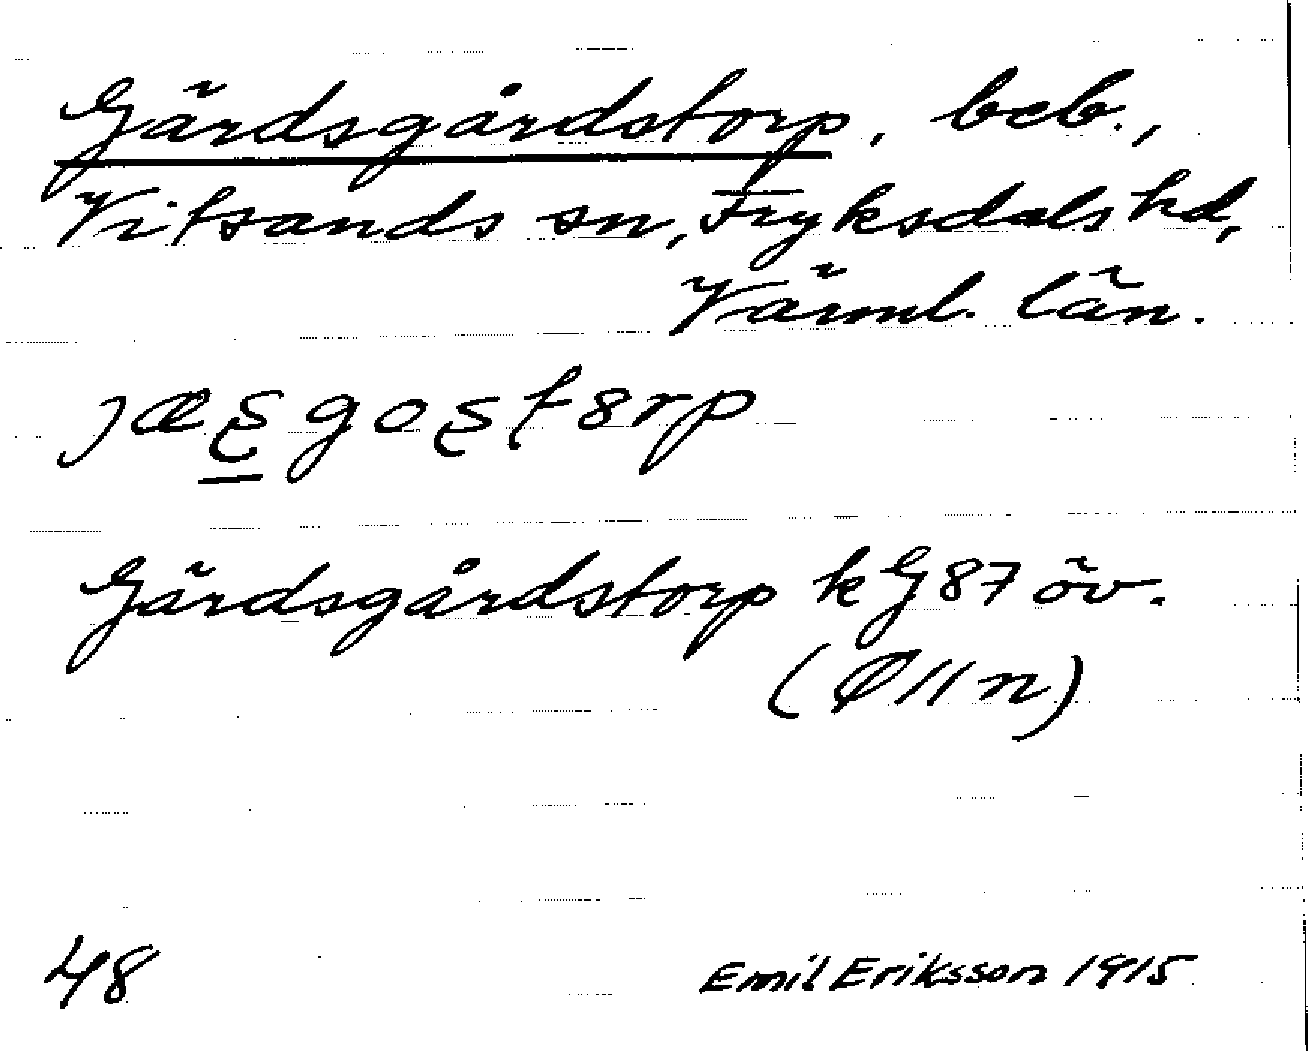 Gärdsgårdstorp, beb.,
Vitsands sn, Fryksdals hd,
Värml. län.
jæʂgoʂt8rp
Gärdsgårdstorp kG87 öv.
48
Emil Eriksson 1915